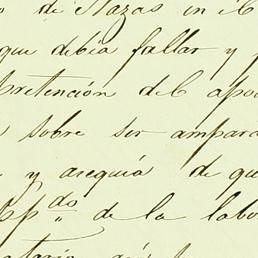 de Nazas in
que debía fallar y
pretención del apo
sobre ser ampara
y asequia de qu
Sp.do de la labo